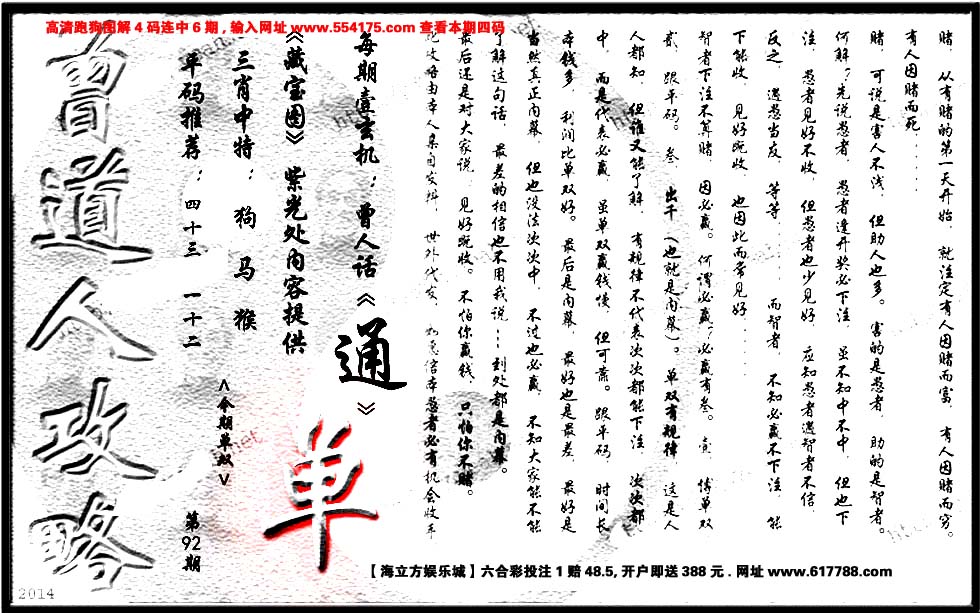 高清跑狗图解4码连中6期，输入网址 www.554175.com 查看本期四码
赌，从有赌的第一天开始，就注定有人因赌而富，有人因赌而穷。
有人因赌而死.....
赌，可说是害人不浅，但助人也多。害的是愚者，助的是智者。
何解？先说愚者，愚者逢开奖必下注，虽不知中不中，但也下
注，愚者见好不收，但愚者也少见好，应知愚者遇智者不信，
反之，遇愚当友，等等......而智者，不知必赢不下注，能
下能收，见好既收，也因此而常见好.....
智者下注不算赌，因必赢。何谓必赢？必赢有叁。壹，博单双
贰，跟平码。叁，出千（也就是内幕）。单双有规律，这是人
人都知，但谁又能了解，有规律不代表次次都能下注，次次都
中，而是代表必赢，虽单双赢钱慢，但可靠。跟平码，时间长
本钱多，利润比单双好。最后是内幕，最好也是最差，最好是
当然真正内幕，但也没法次次中，不过也必赢，不知大家能不
了解这句话，最差的相信也不用我说...到处都是内幕。
最后还是对大家说，见好既收。不怕你赢钱，只怕你不赌。
此攻略由本人亲自发辩，世外代发，如愚信本愚者必有机会收车
每期壹玄机：曾人话《通》
《藏宝图》紫光处内容提供
三肖中特：狗 马 猴
<今期单双>
单
平码推荐：四十三 一十二
第92期
曾道人攻略
【海立方娱乐城】六合彩投注1赔48.5，开户即送388元．网址 www.617788.com
2014